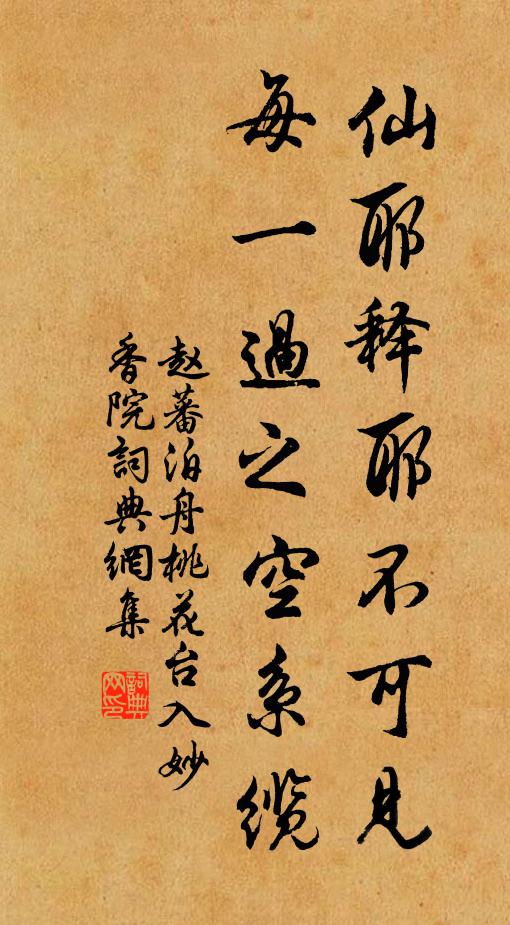 仙耶释耶不可见
每一過之空系缆
赵蕃泊舟桃花台入妙
香院詞典網集
詞典网印